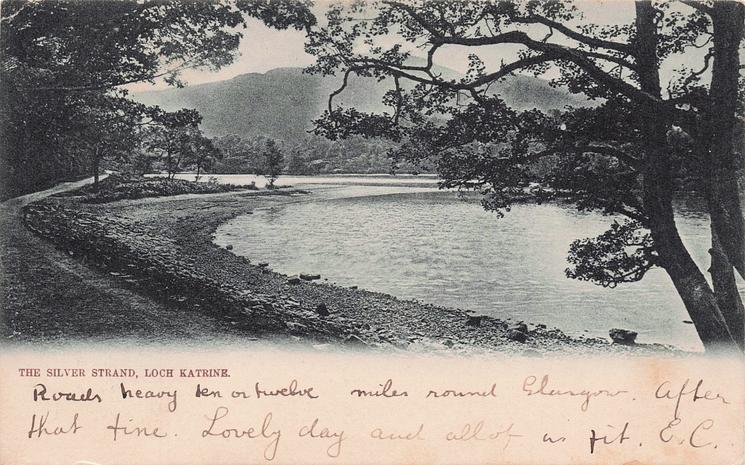 THE SILVER STRAND, LOCH KATRINE.
Roads heavy ten or twelve miles round Glasgow. After
that fine. Lovely day and all of us fit. E.C.